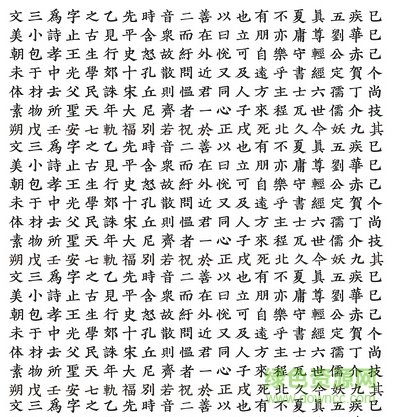 文三爲字之乙先時音二善以也有不夏眞五疾已
美小詩止古見平含衆而在曰立朋亦庸尊劉華巳
朝包孝王生行史怒故紆外悅可自樂守輕公赤己
未于中光學郊十孔散問近又及遠乎書經定賀个
体材去父民誅宋丘則慍君同人方主士六孺丁尚
素物所聖天年大尼齊者一心子來程瓦世儒介技
朔戊壬安七軌福別若祝於正戌死北久令妖九其
文三爲字之乙先時音二善以也有不夏眞五疾已
美小詩止古見平含衆而在曰立朋亦庸尊劉華巳
朝包孝王生行史怒故紆外悅可自樂守輕公赤己
未于中光學郊十孔散問近又及遠乎書經定賀个
体材去父民誅宋丘則慍君同人方主士六孺丁尚
素物所聖天年大尼齊者一心子來程瓦世儒介技
朔戊壬安七軌福別若祝於正戌死北久令妖九其
文三爲字之乙先時音二善以也有不夏眞五疾已
美小詩止古見平含衆而在曰立朋亦庸尊劉華巳
朝包孝王生行史怒故紆外悅可自樂守輕公赤己
未于中光學郊十孔散問近又及遠乎書經定賀个
体材去父民誅宋丘則慍君同人方主士六孺丁尚
素物所聖天年大尼齊者一心子來程瓦世儒介技
朔戊壬安七軌福別若祝於正戌死北久令妖九其
文三爲字之乙先時音二善以也有不夏眞五疾已
绿色资源网
www.downcc.com